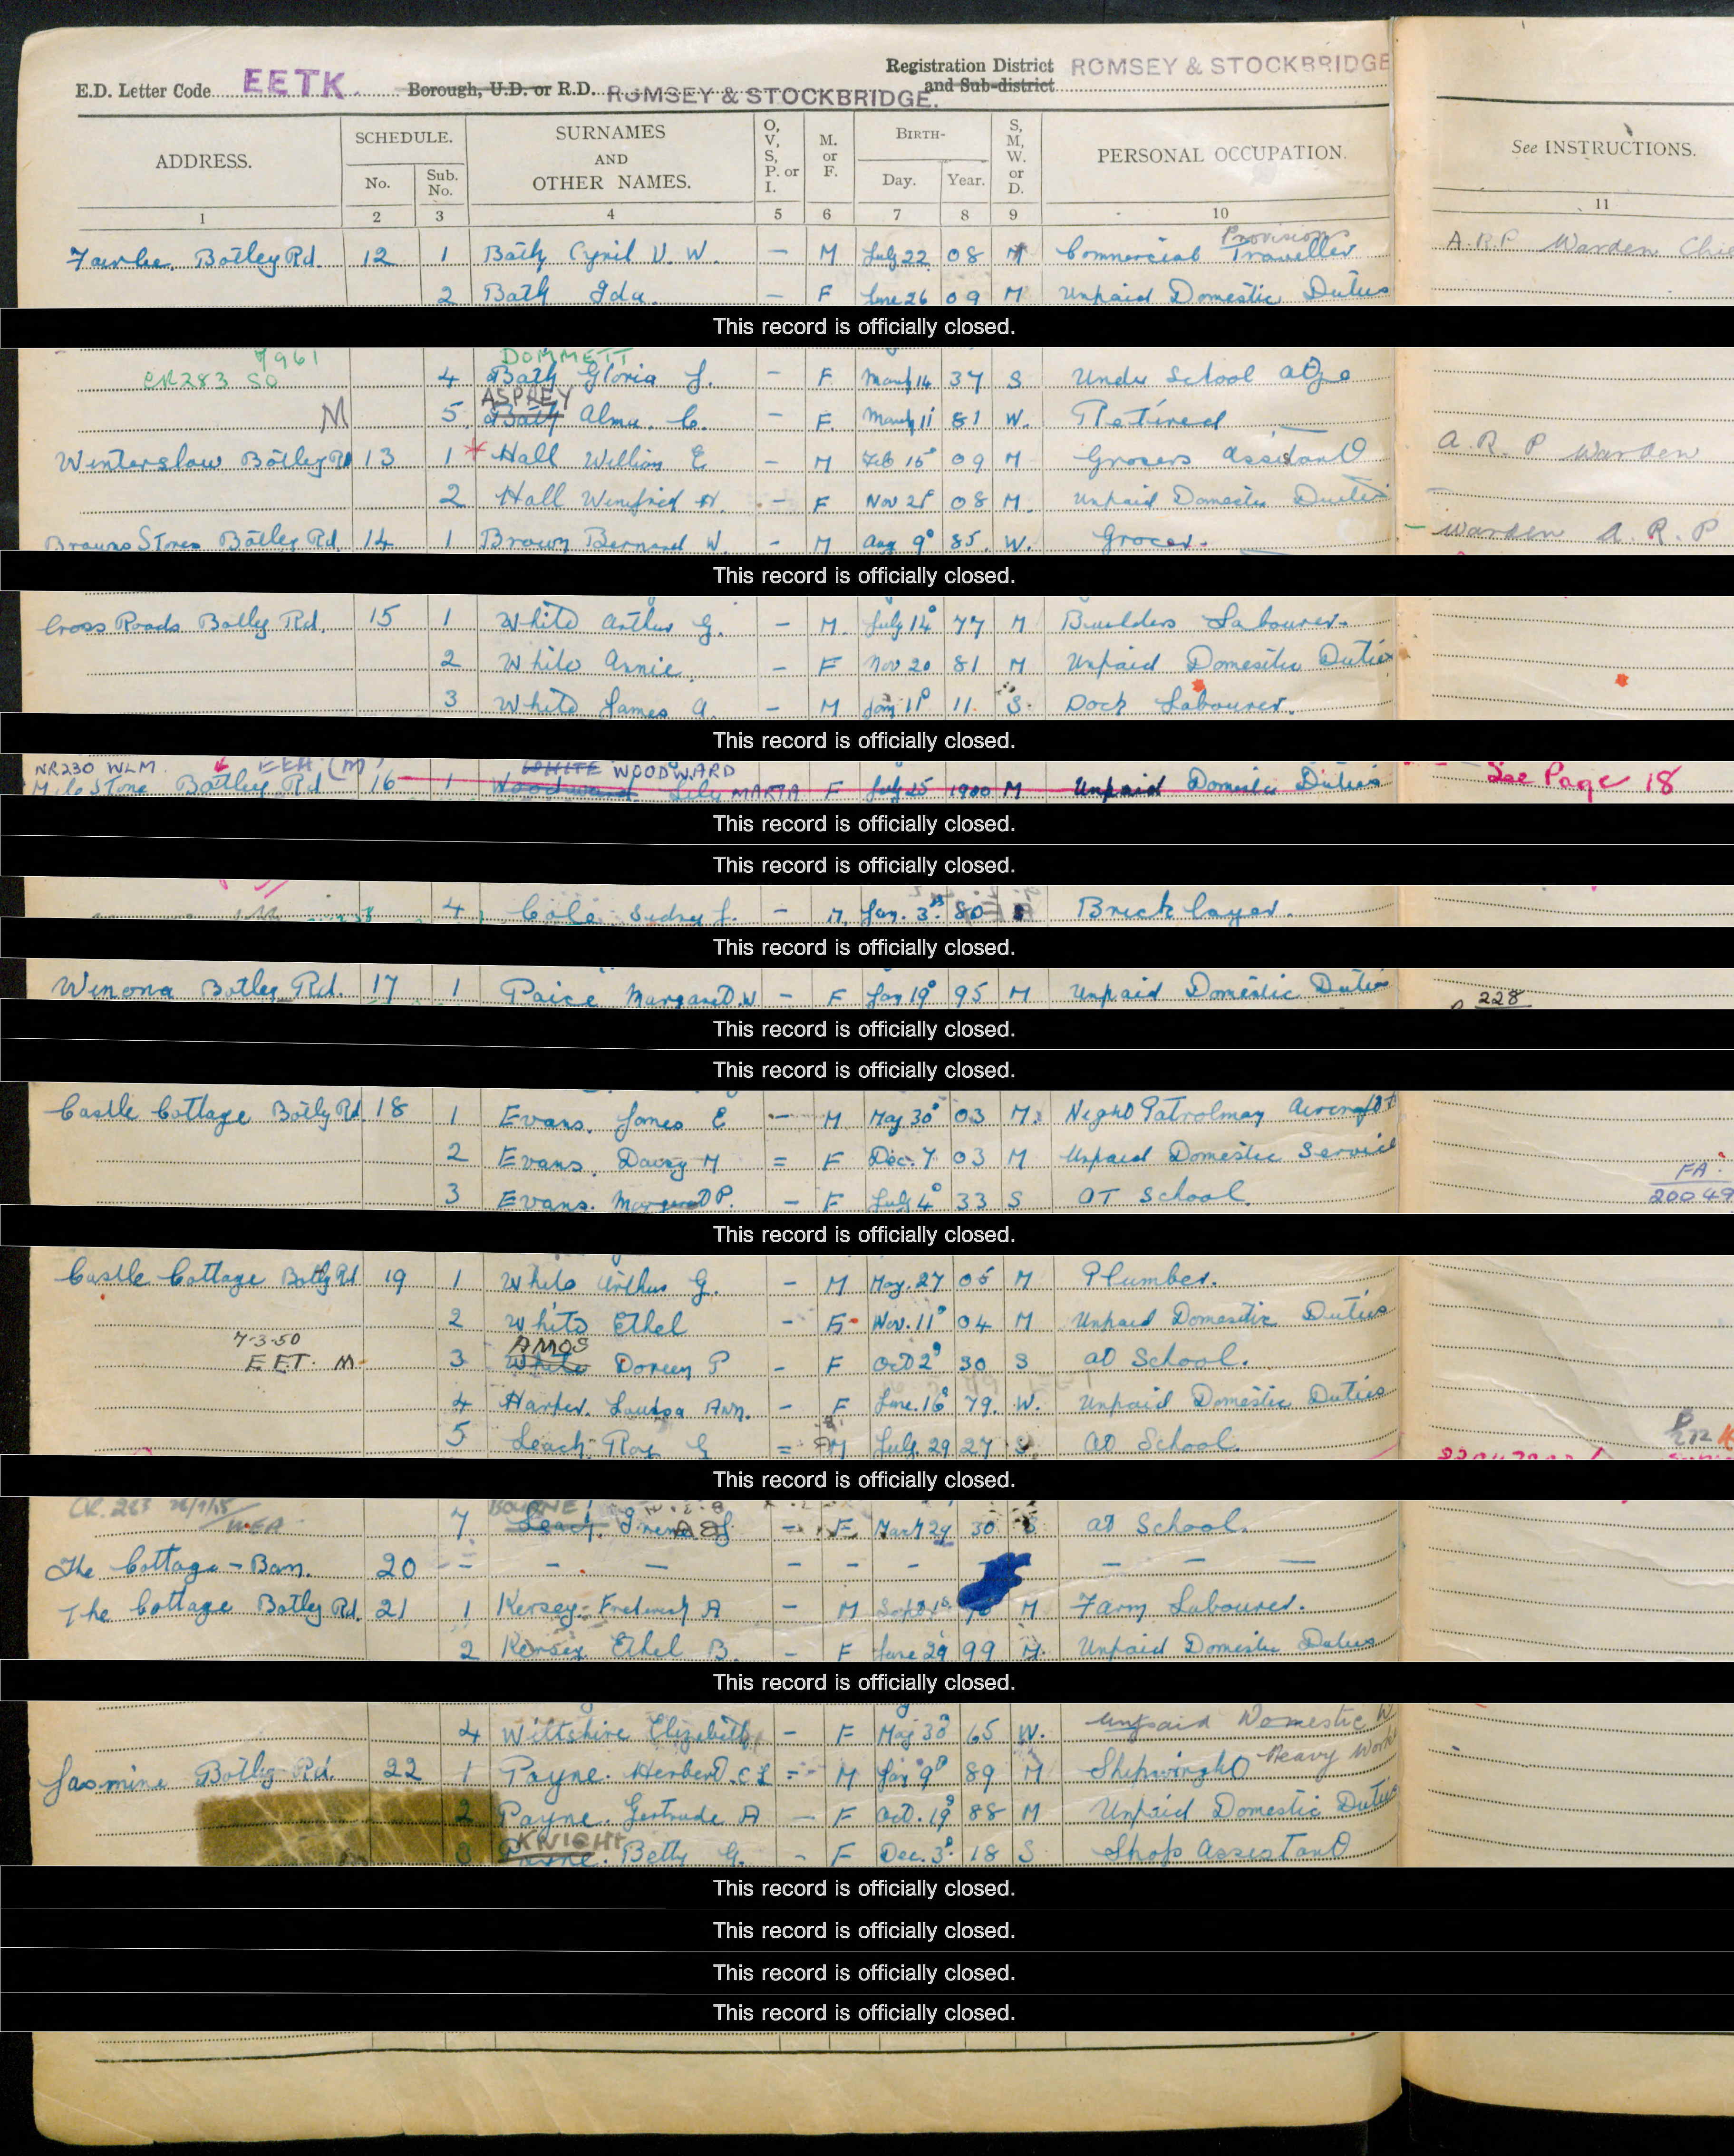 E.D. Letter Code EETK. Borough, U.D. or R.D. ROMSEY & STOCKBRIDGE. Registration District and Sub-district ROMSEY & STOCKBRIDGE
ADDRESS. SCHEDULE. No. Sub. No. SURNAMES AND OTHER NAMES. O, V, S, P. or I. M. or F. BIRTH- Day. Year. S, M, W. or D. PERSONAL OCCUPATION. See INSTRUCTIONS.
1 2 3 4 5 6 7 8 9 10 11
Provisions
Botley Rd 12 1 Bath Cyril V. W. - M July 22 08 M Commercial Traveller A.R.P Warden
2 Bath Ida - F June 26 09 M Unpaid Domestic Duties
This record is officially closed.
7961 DOMMETT
CR283 SO 4 Bath Gloria J. - F March 14 37 S Under School age
ASPREY
M 5 Bath Alma. C. - F. March 11 81 W. Retired
Winterslow Botley Rd 13 1 Hall William E - M Feb 15 09 M Grocers assistant A.R.P Warden
2 Hall Winifred A. - F Nov 21 08 M. Unpaid Domestic Duties
Browns Stores Botley Rd. 14 1 Brown Bernard W. - M Aug 9 85. W. Grocer. Warden A.R.P
This record is officially closed.
Cross Roads Botley Rd. 15 1 White Arthur G. - M. July 14 77 M Builders Labourer.
2 White Annie. - F Nov 20 81 M Unpaid Domestic Duties
3 White James A. - M Jan 11 11. S. Dock Labourer.
This record is officially closed.
NR230 WLM EEH (M) WHITE WOODWARD
Mile Stone Botley Rd 16 1 Woodward Lily MARIA F July 25 1900 M Unpaid Domestic Duties See Page 18
This record is officially closed.
This record is officially closed.
4 Cole Sidney J. - M. Jan. 3. 80 Bricklayer.
This record is officially closed.
Winona Botley Rd. 17 1 Paice Margaret W - F Jan 19 95 M Unpaid Domestic Duties 228
This record is officially closed.
This record is officially closed.
Castle Cottage Botley Rd. 18 1 Evans. James E - M May 30 03 M. Night Patrolman Aircraft
2 Evans. M = F Dec. 7 03 M Unpaid Domestic Service FA.
3 Evans. Margaret P. - F July 4 33 S at School. 20049
This record is officially closed.
Castle Cottage Botley Rd 19 1 White Arthur G. - M May. 27 05 M Plumber.
2 White Ethel - F. Nov. 11 04 M Unpaid Domestic Duties
7-3-50 AMOS
EET. M 3 White Doreen P - F Oct 2 30 S at School.
4 Harper. Louisa Ann. - F June. 16 79. W. Unpaid Domestic Duties
5 Leach Roy G = M July 29 27 S at School.
This record is officially closed.
CR. 283 BOURNE
7 Leach. Irene J. - F March 29 30 S at School.
The Cottage - Barn. 20 - - - - - - - - -
The Cottage Botley Rd. 21 1 Kersey Frederick A - M Sept 18 M Farm Labourer.
2 Kersey Ethel B. - F June 29 99 M. Unpaid Domestic Duties
This record is officially closed.
4 Wiltshire Elizabeth - F May 30 65 W. Unpaid Domestic W
Jasmine Botley Rd. 22 1 Payne. Herbert. C L = M Jan 9 89 M Shipwright Heavy Work
2 Payne. Gertrude A - F Oct. 19 88 M Unpaid Domestic Duties
KNIGHT
3 Payne. Betty G. - F Dec. 3. 18 S Shop Assistant
This record is officially closed.
This record is officially closed.
This record is officially closed.
This record is officially closed.